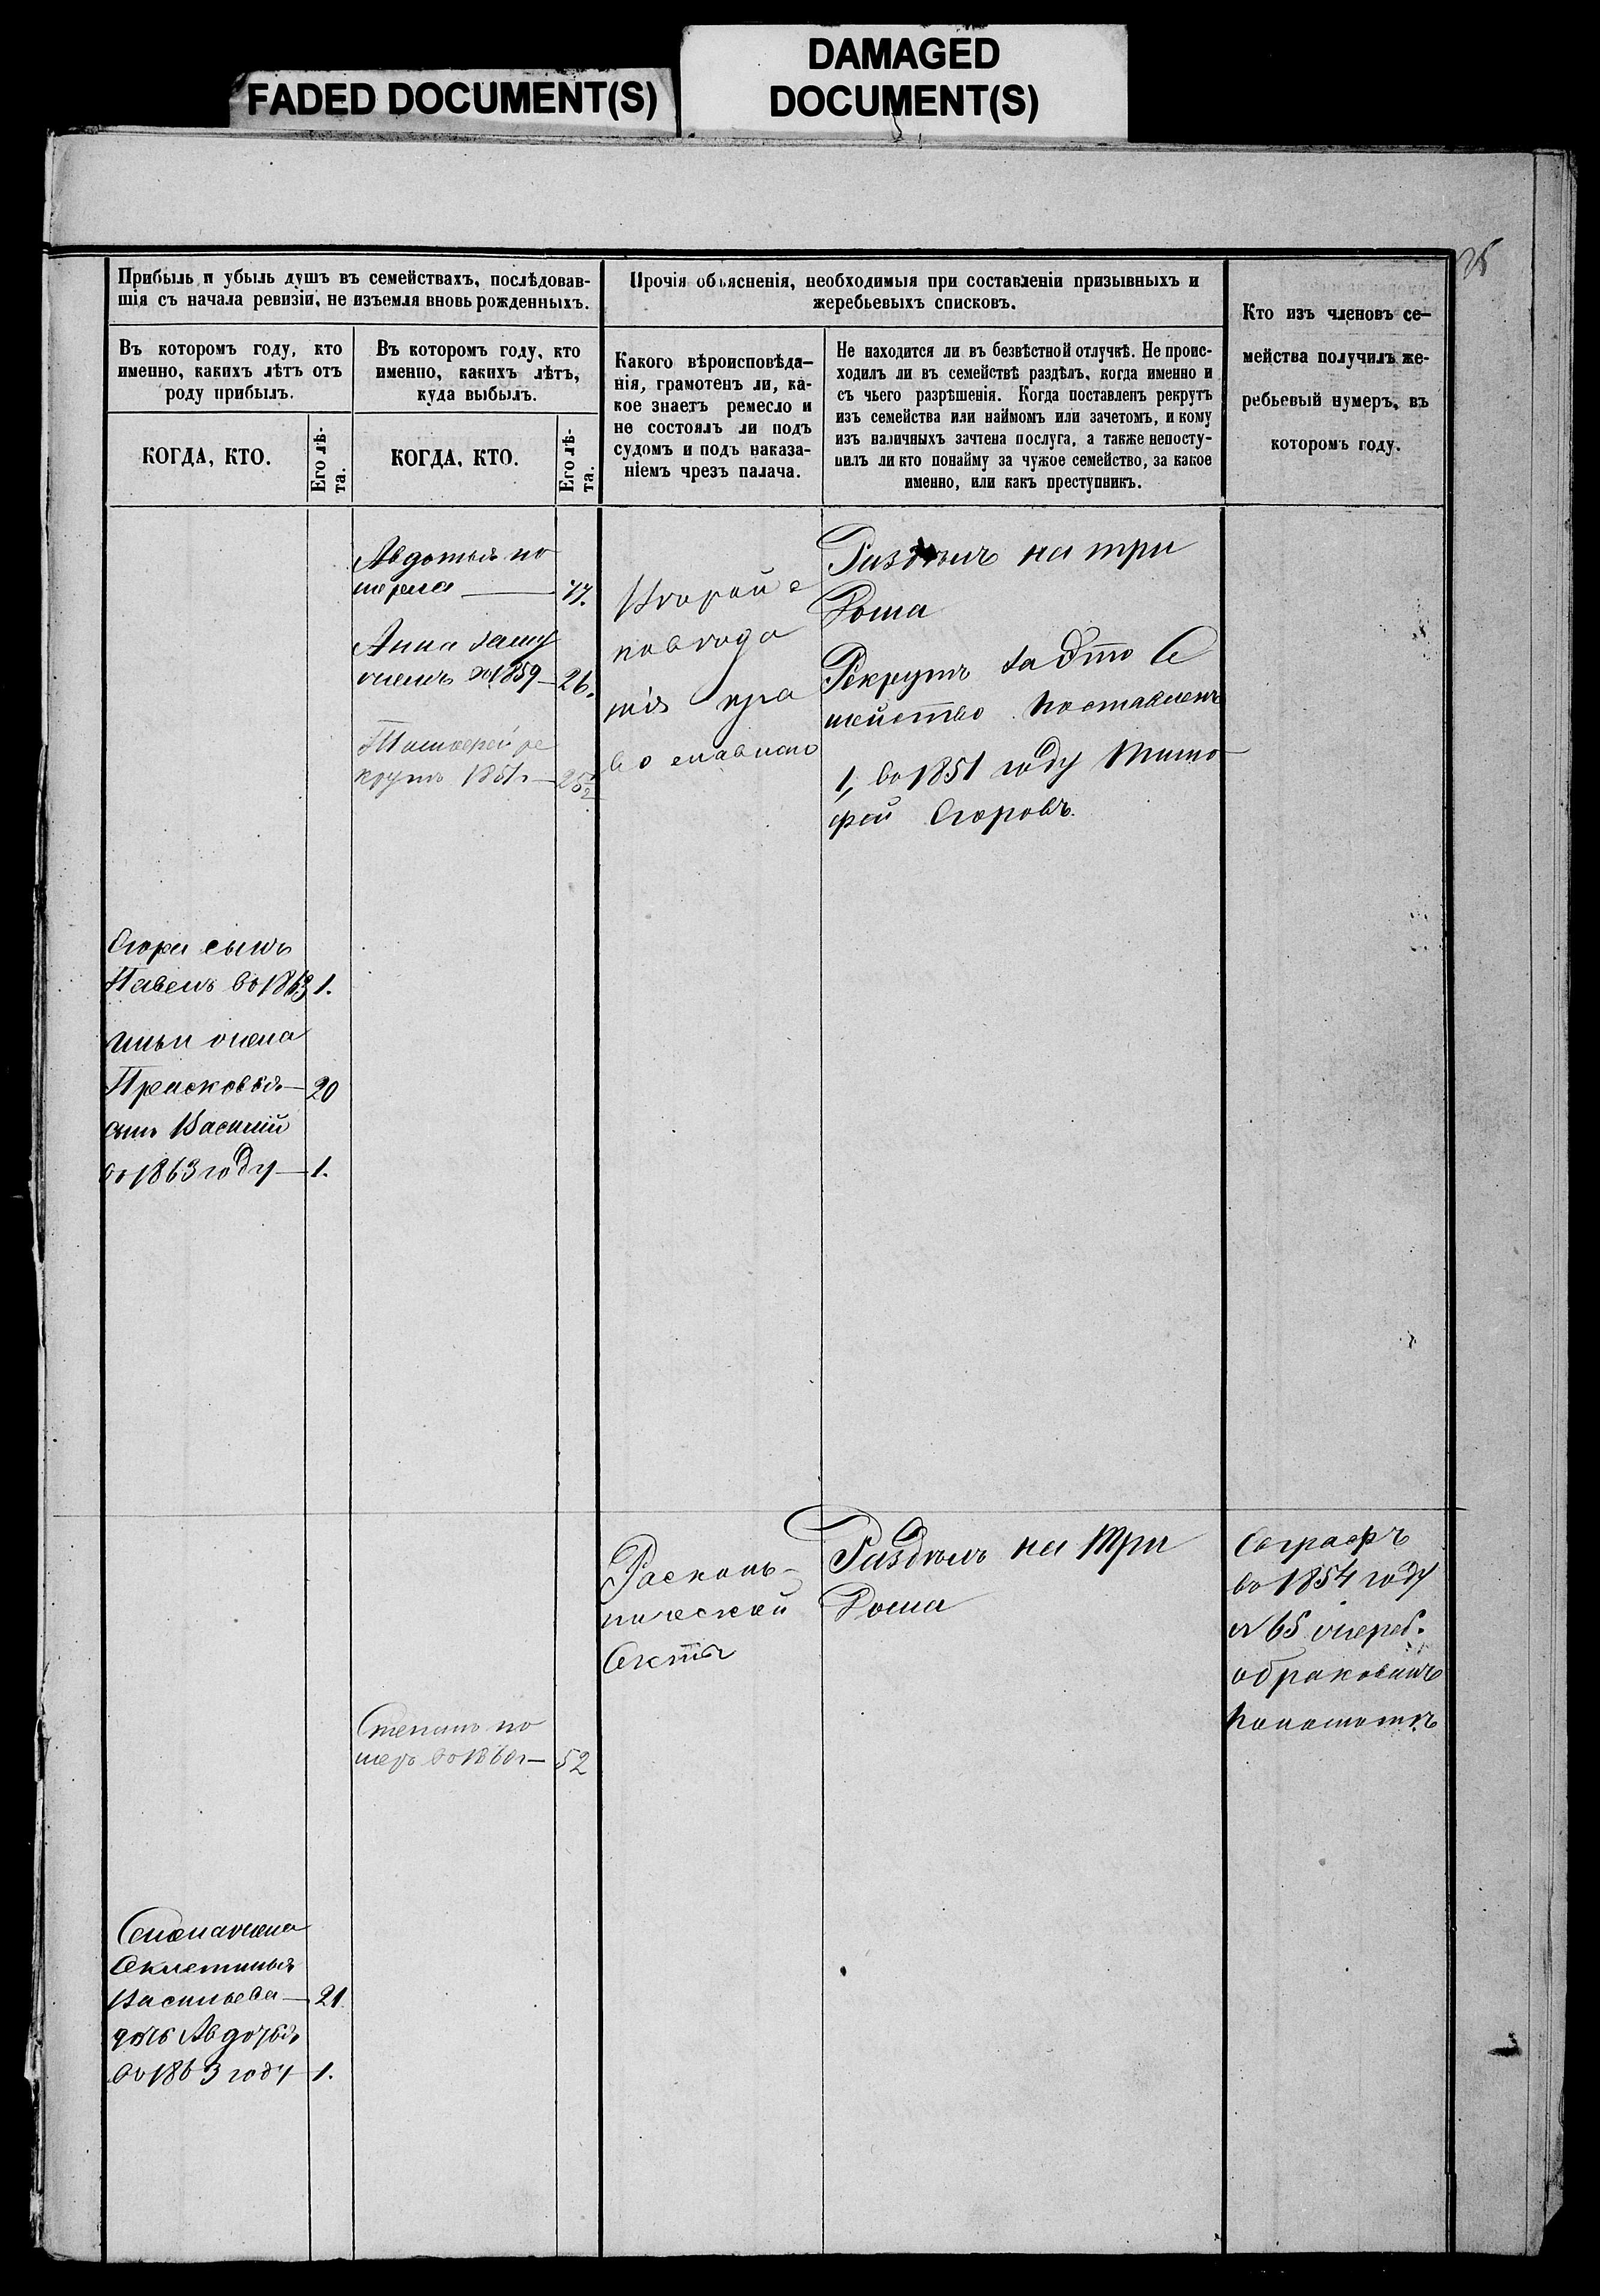 FADED DOCUMENT(S)
DAMAGED
DOCUMENT(S)
Прибыль и убыль душъ въ семействахъ, послѣдовав-
шія съ начала ревизіи, не изъемля вновь рожденныхъ.
Прочія объясненія, необходимыя при составленіи призывныхъ и
жеребьевыхъ списковъ.
Кто изъ членовъ се-
мейства получилъ же-
ребьевый нумеръ, въ
которомъ году.
Въ которомъ году, кто
именно, какихъ лѣтъ отъ
роду прибылъ.
Въ которомъ году, кто
именно, какихъ лѣтъ,
куда выбылъ.
Какого вѣроисповѣда-
нія, грамотенъ ли, ка-
кое знаетъ ремесло и
не состоялъ ли подъ
судомъ и подъ наказа-
ніемъ чрезъ палача.
Не находится ли въ безвѣстной отлучкѣ. Не проис-
ходилъ ли въ семействѣ раздѣлъ, когда именно и
съ чьего разрѣшенія. Когда поставленъ рекрутъ
изъ семейства или наймомъ или зачетомъ, и кому
изъ наличныхъ зачтена послуга, а также непосту-
пилъ ли кто понайму за чужое семейство, за какое
именно, или какъ преступникъ.
КОГДА, КТО.
Его лѣ-
та.
КОГДА, КТО.
Его лѣ-
та.
Авдотья по
мерла
Анна заму
жемъ 1859 26.
рекрутъ 1851 г
Раздѣлъ на три
Дома
Рекрутъ за это Се
мейство поставленъ
1, во 1851 году Тимо-
фей Егоровъ.
пра
во славнаго
Егора сынъ
Павелъ во 1863 1.
жена
Прасковья 20
сынъ Василій
во 1863 году 1.
Расколь-
нической
Секты
Раздѣлъ на три
Дома
Евграфъ
во 1854 году
№ 65 жереб.
обракованъ
Степанъ по
меръ во 1860 г 52
Семена жена
Екатерина
Васильева 21.
дочь Авдотья
во 1863 году 1.